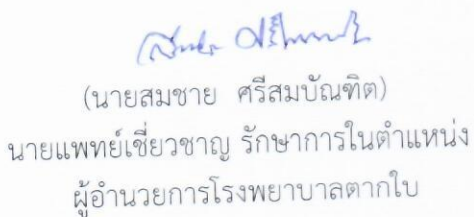 (นายสมชาย ศรีสมบัณฑิต)
นายแพทย์เชี่ยวชาญ รักษาการในตำแหน่ง
ผู้อำนวยการโรงพยาบาลตากใบ